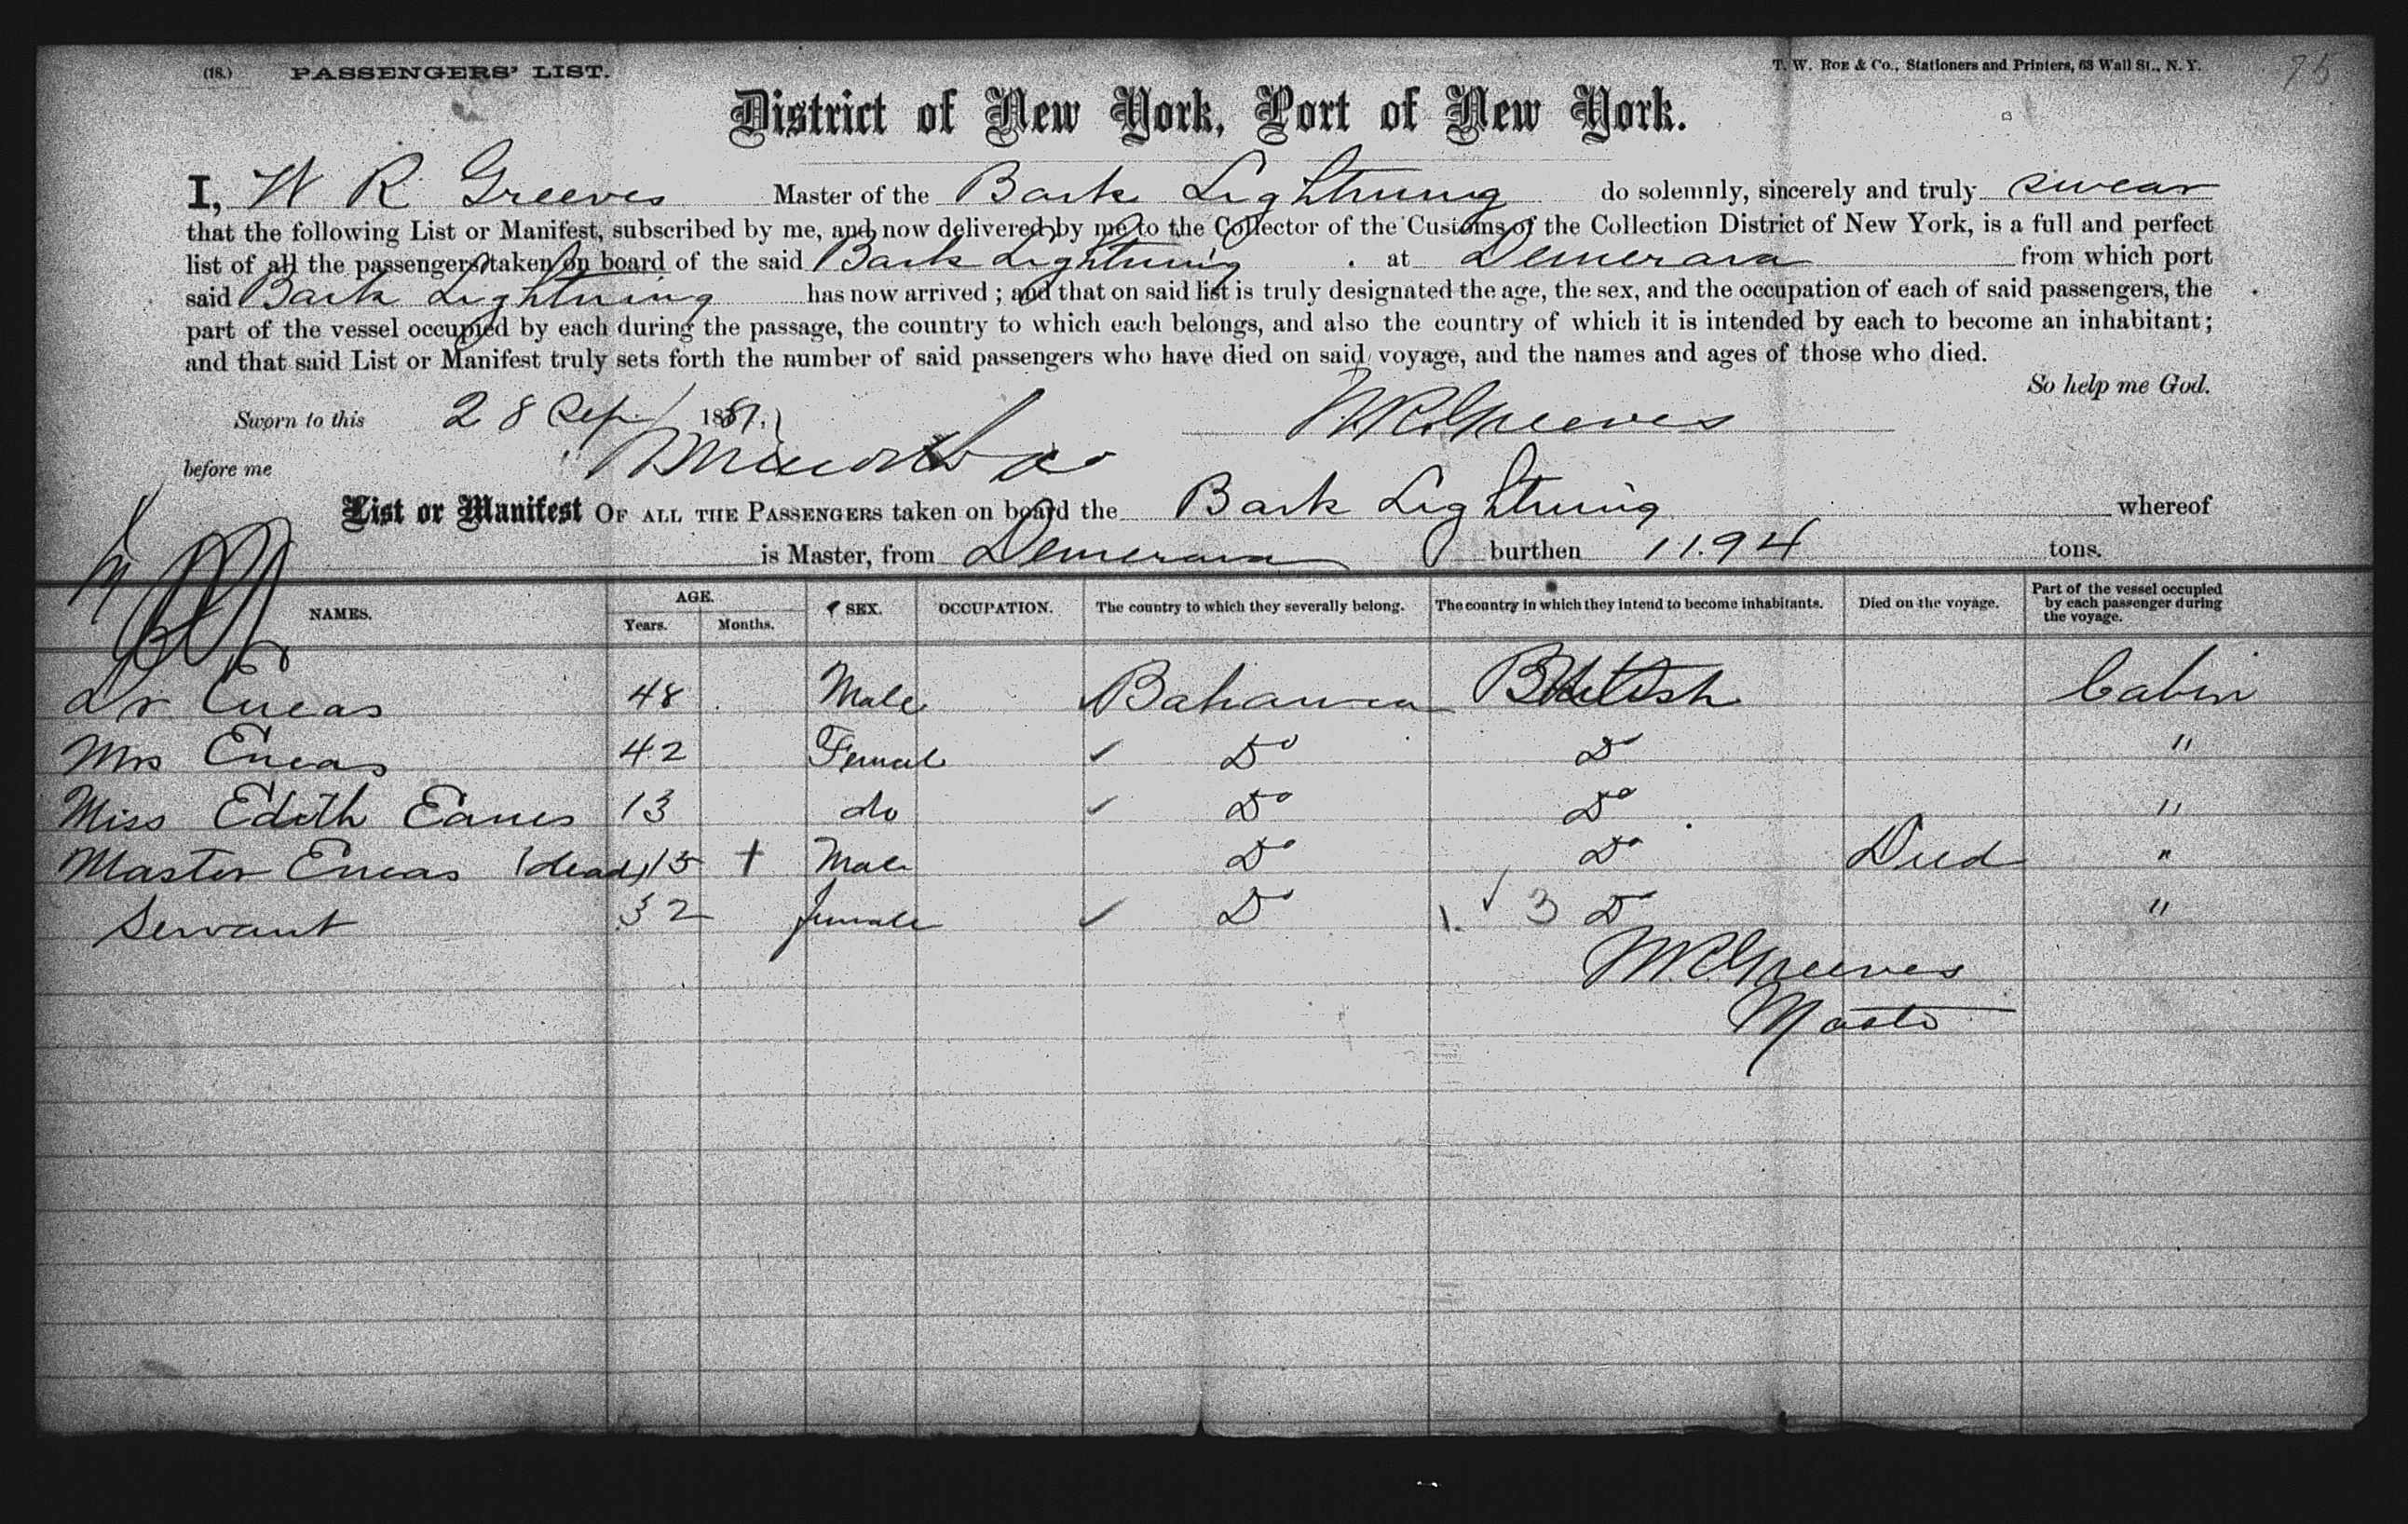 (18.) PASSENGERS' LIST. T. W. Roe & Co., Stationers and Printers, 63 Wall St., N. Y.
District of New York, Port of New York.
I, W R Greeves Master of the Bark Lightning do solemnly, sincerely and truly swear
that the following List or Manifest, subscribed by me, and now delivered by me to the Collector of the Customs of the Collection District of New York, is a full and perfect
list of all the passengers taken on board of the said Bark Lightning at Demerara from which port
said Bark Lightning has now arrived; and that on said list is truly designated the age, the sex, and the occupation of each of said passengers, the
part of the vessel occupied by each during the passage, the country to which each belongs, and also the country of which it is intended by each to become an inhabitant;
and that said List or Manifest truly sets forth the number of said passengers who have died on said voyage, and the names and ages of those who died.
So help me God.
Sworn to this 28 Sep 1881. W.R. Greeves
before me
List or Manifest OF ALL THE PASSENGERS taken on board the Bark Lightning whereof
is Master, from Demerara burthen 1194 tons.
NAMES. AGE. Years. Months. SEX. OCCUPATION. The country to which they severally belong. The country in which they intend to become inhabitants. Died on the voyage. Part of the vessel occupied by each passenger during the voyage.
Dr Eneas 48 Male Bahama British Cabin
Mrs Eneas 42 Female Do Do "
Miss Edith Eanes 13 do Do Do "
Master Eneas (dead) 15 + Male Do Do Died "
Servant 32 female Do 3 Do "
W.R. Greeves
Master